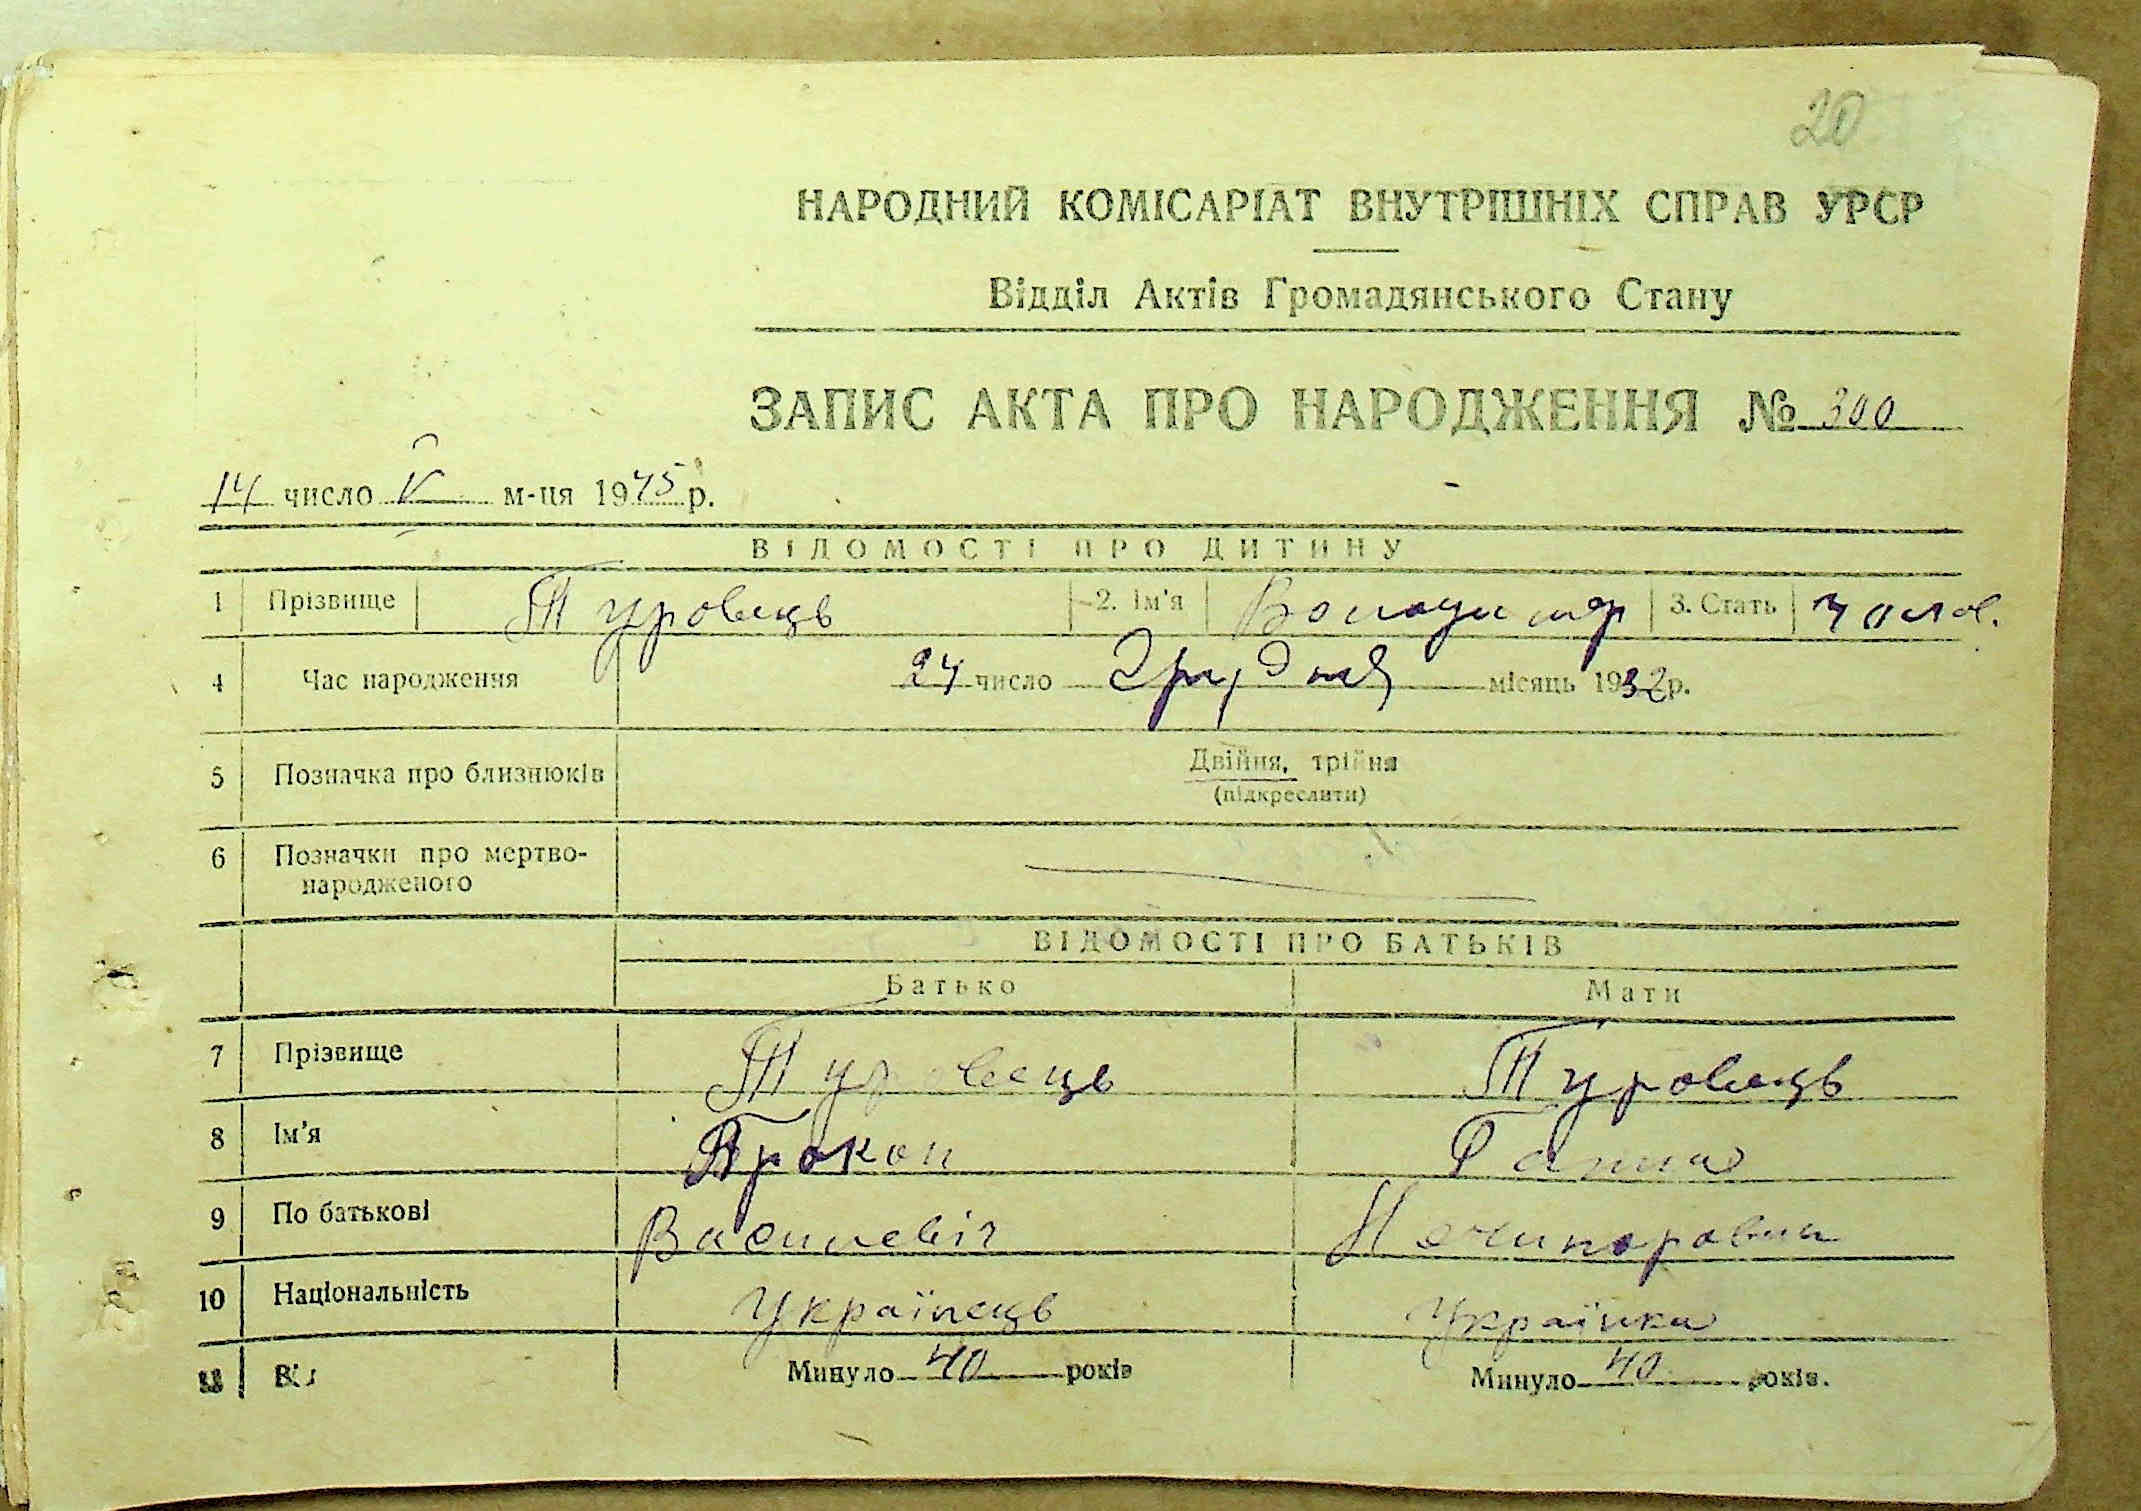 20
НАРОДНИЙ КОМІСАРІАТ ВНУТРІШНІХ СПРАВ УРСР
Відділ Актів Громадянського Стану
ЗАПИС АКТА ПРО НАРОДЖЕННЯ № 300
14 число V м-ця 1945 р.
ВІДОМОСТІ ПРО ДИТИНУ
1 Прізвище Туровець 2. Ім'я Володимир 3. Стать чолов.
4 Час народження 24 число Грудня місяць 1932 р.
5 Позначка про близнюків Двійня, трійня
(підкреслити)
6 Позначки про мертво-
народженого
ВІДОМОСТІ ПРО БАТЬКІВ
Батько Мати
7 Прізвище Туровець Туровець
8 Ім'я Прокоп Ганна
9 По батькові Василевіч Нечипоровна
10 Національність Українець Українка
11 Минуло 40 років Минуло 40 років.